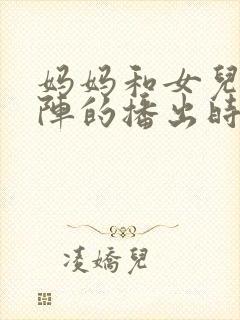 妈妈和女兒
陣的播出時
凌嬌兒